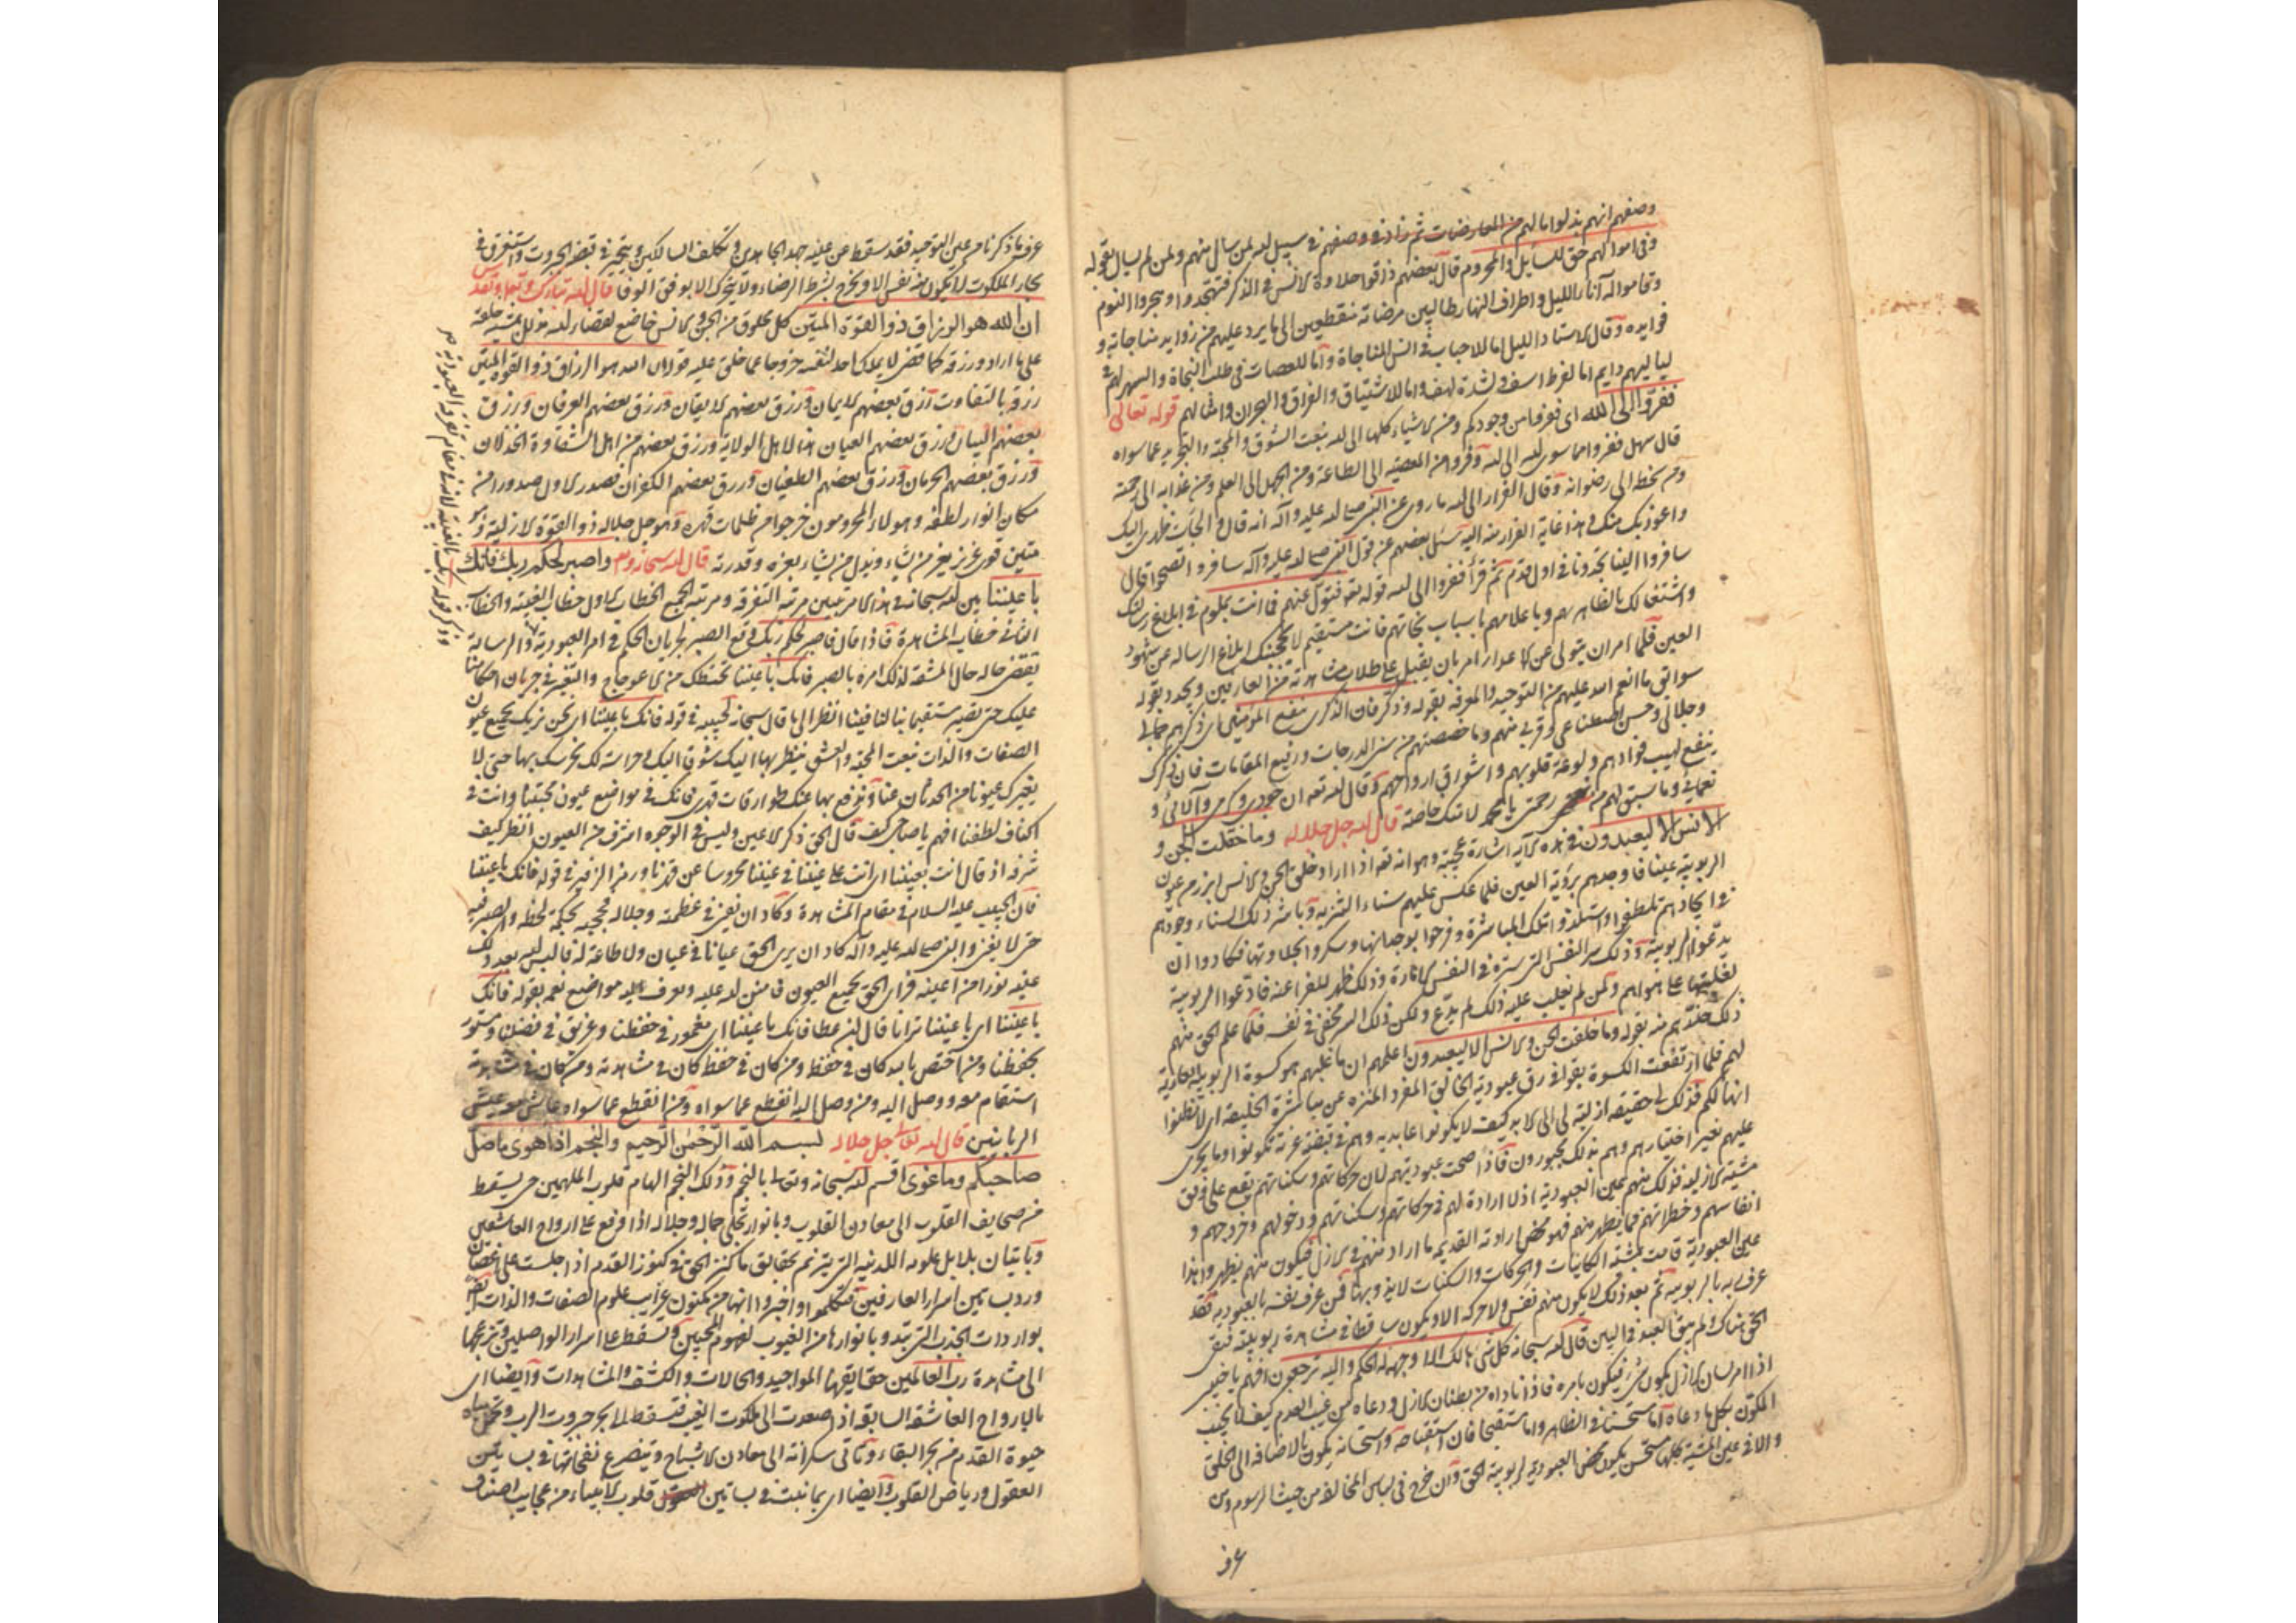 وصفهم انهم بذلوا مالهم من المعارضات ثم زاد في وصفهم في سبيل الله لمن سال منهم ولمن لم يسال بقوله
وفي اموالهم حق للسايل والمحروم قال بعضهم ذاقوا حلاوة الانس في الذكر فتهجدوا وهجروا النوم
وقاموا له آناء الليل واطراف النهار طالبين مرضاته منقطعين الى ما يرد عليهم من زوايد مناجاته و
فوايده وقال الاستاد الليل اما للاحباب في انس المناجاة واما للعصات في طلب النجاة والسهر لهم في
لياليهم دايم اما لفرط اسف ولشدة لهف واما للاشتياق والفراق والهجران وامثالهم قوله تعالى
ففروا الى الله اى ففروا من وجودكم ومن الاشياء كلها الى الله بنعت الشوق والمحبة والتجريد عما سواه
قال سهل ففروا مما سوى الله الى الله وفروا من المعصية الى الطاعة ومن الجهل الى العلم ومن عذابه الى رحمته
ومن سخطه الى رضوانه وقال الفرار الى الله ما روى عن النبي صلى الله عليه وآله انه قال والجأت ظهرى اليك
واعوذ بك منك فهذا غاية الفرار منه اليه سئل بعضهم عن قول النبي صلى الله عليه وآله سافروا تصحوا قال
سافروا الينا تجدونا في اول قدم ثم قرأ ففروا الى الله قوله تعه فتول عنهم فما انت بملوم في ابلاغ رسالتك
واشتغالك بالظاهر معهم وباعلامهم باسباب نجاتهم فانت مستقيم لا يحجبنك ابلاغ الرساله عن شهود
العين فلما امران يتولى عن الاعدار امر بان يقبل على طلاب مشاهدته من العارفين ويجدد بقوله
سوابق ما انعم الله عليهم من التوحيد والمعرفه بقوله وذكر فان الذكرى تنفع المؤمنين اى ذكرهم جمالى
وجلالى وحسن اصطناعى وقربى منهم وما خصصتهم من سنى الدرجات ورفيع المقامات فان ذكرك
ينفع لهيب فوادهم ولوعة قلوبهم واشواق ارواحهم وقال الله تعه ان جودى وكرمى وآلائى و
نعمائى وما سبق لهم من رحمتى يا محمد لانك خاصة قال الله جل جلاله وما خلقت الجن و
الانس الا ليعبدون في هذه الآيه اشارة عجيبة وهو انه تعه اذا اراد خلق الجن والانس ابرزهم عيون
الربوبية عينا فاوجدهم برؤية العين فلما عكس عليهم سناء التنزيه وباشر ذلك السناء وجودهم
في ايجادهم تلطفوا واستلذوا تلك المباشرة وفرحوا بوجدانها وسكروا بحلاوتها فكادوا ان
يدعوا الربوبية وذلك سر النفس التي سترة في النفس الامارة وذلك ظهر للفراعنة فادعوا الربوبية
لغلبتها على هواهم ولمن لم تغلب عليه ذلك لم يدع ولكن ذلك السر مخفى في نفسه فلما علم الحق منهم
ذلك حذرهم منه بقوله وما خلقت الجن والانس الا ليعبدون اعلمهم ان ما غلبهم هو كسوة الربوبية العارية
لهم فلما ارتفعت الكسوة بقوا في رق عبودية الخالق المفرد المنزه عن مباشرة الخليقة اى لا تظنوا
انها لكم فذلك لى حقيقه ازلية لى الى الابد كيف لا يكونوا عابديه وهم في قبضة عزته تكونوا وما يجرى
عليهم بغير اختيارهم وهم بذلك مجبورون فاذا صحت عبوديتهم لان حركاتهم وسكناتهم يقع على وفق
مشيته الازلية فذلك منهم عين العبودية اذ لا ارادة لهم في حركاتهم وسكناتهم ودخولهم وخروجهم و
انفاسهم وخطراتهم فما يظهر منهم فهو محض ارادته القديمه ما اراد منهم في الازل فيكون منهم يظهر وهذا
عين العبودية قامت بمشيته الكاينات والحركات والسكنات لا يغرب بها فمن عرف نفسه بالعبودية فقد
عرف ربه بالربوبيه ثم بعد ذلك لا يكون منهم نفس ولا حركه الا ويكون ساقطا في مشاهدة ربوبيته فبقى
الحق هناك ولم يبق العبد في البين قال الله سبحانه كل شئ هالك الا وجهه له الحكم واليه ترجعون افهم يا خبير
اذا امر لسان الازل بكون شئ فيكون بامره فاذا ناداه من بطنان الازل ودعاه من غيب العدم كيف لا يجيب
المكون بكل ما دعاه اما مستحسنا في الظاهر واما مستقبحا فان استقباحه واستحسانه يكون بالاضافه الى الخلق
والا في عين المشية كلها مستحسن يكون محض العبودية لربوبية الحق وان خرج في لباس المخالفة من حيث الرسوم ومن
عرف
عرف ما ذكرنا من عين التوحيد فقد سقط عن عينه جهد المجاهدين وتكلف السالكين ويتحير في قبضة الجبروت واستغرق في
بحار الملكوت لا يكون منه نفس الا ويخرج بشرط الرضاء ولا يتحرك الا بوفق الوفا قال الله تبارك وتعالى وتقدس
ان الله هو الرزاق ذو القوة المتين كل مخلوق من الجن والانس خاضع لقضاء الله مذلل بمشيته خلقه
على ما اراد ورزقه كما قضى لا يملك احد لنفسه خروجا عما خلق عليه قوله ان الله هو الرزاق ذو القوة المتين
رزقه بالتفاوت رزق بعضهم الايمان ورزق بعضهم الايقان ورزق بعضهم العرفان ورزق
بعضهم البيان ورزق بعضهم العيان هذا لاهل الولاية ورزق بعضهم من اهل الشقاوة الخذلان
ورزق بعضهم الحرمان ورزق بعضهم الطغيان ورزق بعضهم الكفران فصدر الاول صدورا من
مكان انوار لطفه وهولاء المحرومون خرجوا من ظلمات قهره وهو جل جلاله ذو القوة الازلية وهو
متين قوى عزيز يعز من يشاء ويذل من يشاء بعزه وقدرته قال الله سبحانه وتعه واصبر لحكم ربك فانك
باعيننا بين الله سبحانه في هذا الامر مرتبتين مرتبة التفرقه ومرتبة الجمع الخطاب الاول خطاب الغيبة والخطاب
الثانى خطاب المشاهدة فاذا قال فاصبر لحكم ربك وقع الصبر لجريان الحكم في امر العبودية والرسالة
يقتضى حاله حال المشقة لذلك امره بالصبر فانك باعيننا نحفظك من الاعوجاج والتغير في جريان احكامنا
عليك حتى تصير مستقيما بنا لنا فينا انظر الى ما قال سبحانه لحبيبه في قوله فانك باعيننا اى نحن نريك بجميع عيون
الصفات والذات بنعت المحبة والعشق ينظر بها اليك شوقا اليك وحراسة لك نحرسك بها حتى لا
يغيرك عيونا من الحدثان عنا وندفع بها عنك طوارقات قهرى فانك في مواضع عيون محبتنا وانت في
اكناف لطفنا افهم يا صاحبى كيف قال الحق ذكر الاعين وليس في الوجود اشرف من العيون انظر كيف
شرفه اذ قال انت بعيننا اى انت على عيننا في عيننا محروسا عن قهرنا ورمز الرمز في قوله فانك باعيننا
فان الحبيب عليه السلام في مقام المشاهدة وكاد ان يغنى في عظمته وجلاله فحجبه بحكمه لحظة والصبر فيه
حتى لا يفنى والنبي صلى الله عليه وآله كاد ان يرى الحق عيانا في عيان ولا طاعة له فالبس له بعد ذلك
عينه نورا من اعينه فراى الحق بجميع العيون فامتن الله عليه وعرف عليه مواضع نعمه بقوله فانك
باعيننا اى باعيننا ترانا قال ابن عطا فانك باعيننا اى مغمور في حفظنا وغريق في فضلنا ومستور
بحفظنا ومن اختص بابه كان في حفظه ومن كان في حفظه كان في مشاهدته ومن كان في مشاهدته
استقام معه ووصل اليه ومن وصل اليه انقطع عما سواه ومن انقطع عما سواه عاش معه عيش
الربانيين قال الله تعالى جل جلاله بسم الله الرحمن الرحيم والنجم اذا هوى ما ضل
صاحبكم وما غوى اقسم الله سبحانه وتعالى بالنجم وذلك النجم الهام قلوب الملهمين حين يسقط
من صحايف القلوب الى معادن القلوب وبانوار تجلى جماله وجلاله اذا وقع على ارواح العاشقين
وباتيان بلابل علومه اللدنيه التى يترنم بحقايق ما كنز الحق في كنوز القدم اذا جلست على اغصان
ورد بساتين اسرار العارفين فتكلموا واخبروا انها من مكنون غرايب علوم الصفات والذات ايضا
بواردات الجذب التى تبدو بانوارها من الغيوب لفهوم المحبين وتسقط على اسرار الواصلين وتزعجها
الى مشاهدة رب العالمين حقايقها المواجيد والحالات والكشف والمشاهدات وايضا اى
بالارواح العاشقة السابقة اذا صعدت الى ملكوت الغيب فتسقط الى بحر جبروت الرب وتحمل مياه
حيوة القدم من بحر البقاء وتاتى سكرانة الى معادن الاشباح ويتضوع نفحاتها في بساتين
العقول ورياض القلوب وايضا اى بما نبت في بساتين قلوب الانبياء من عجايب اصناف